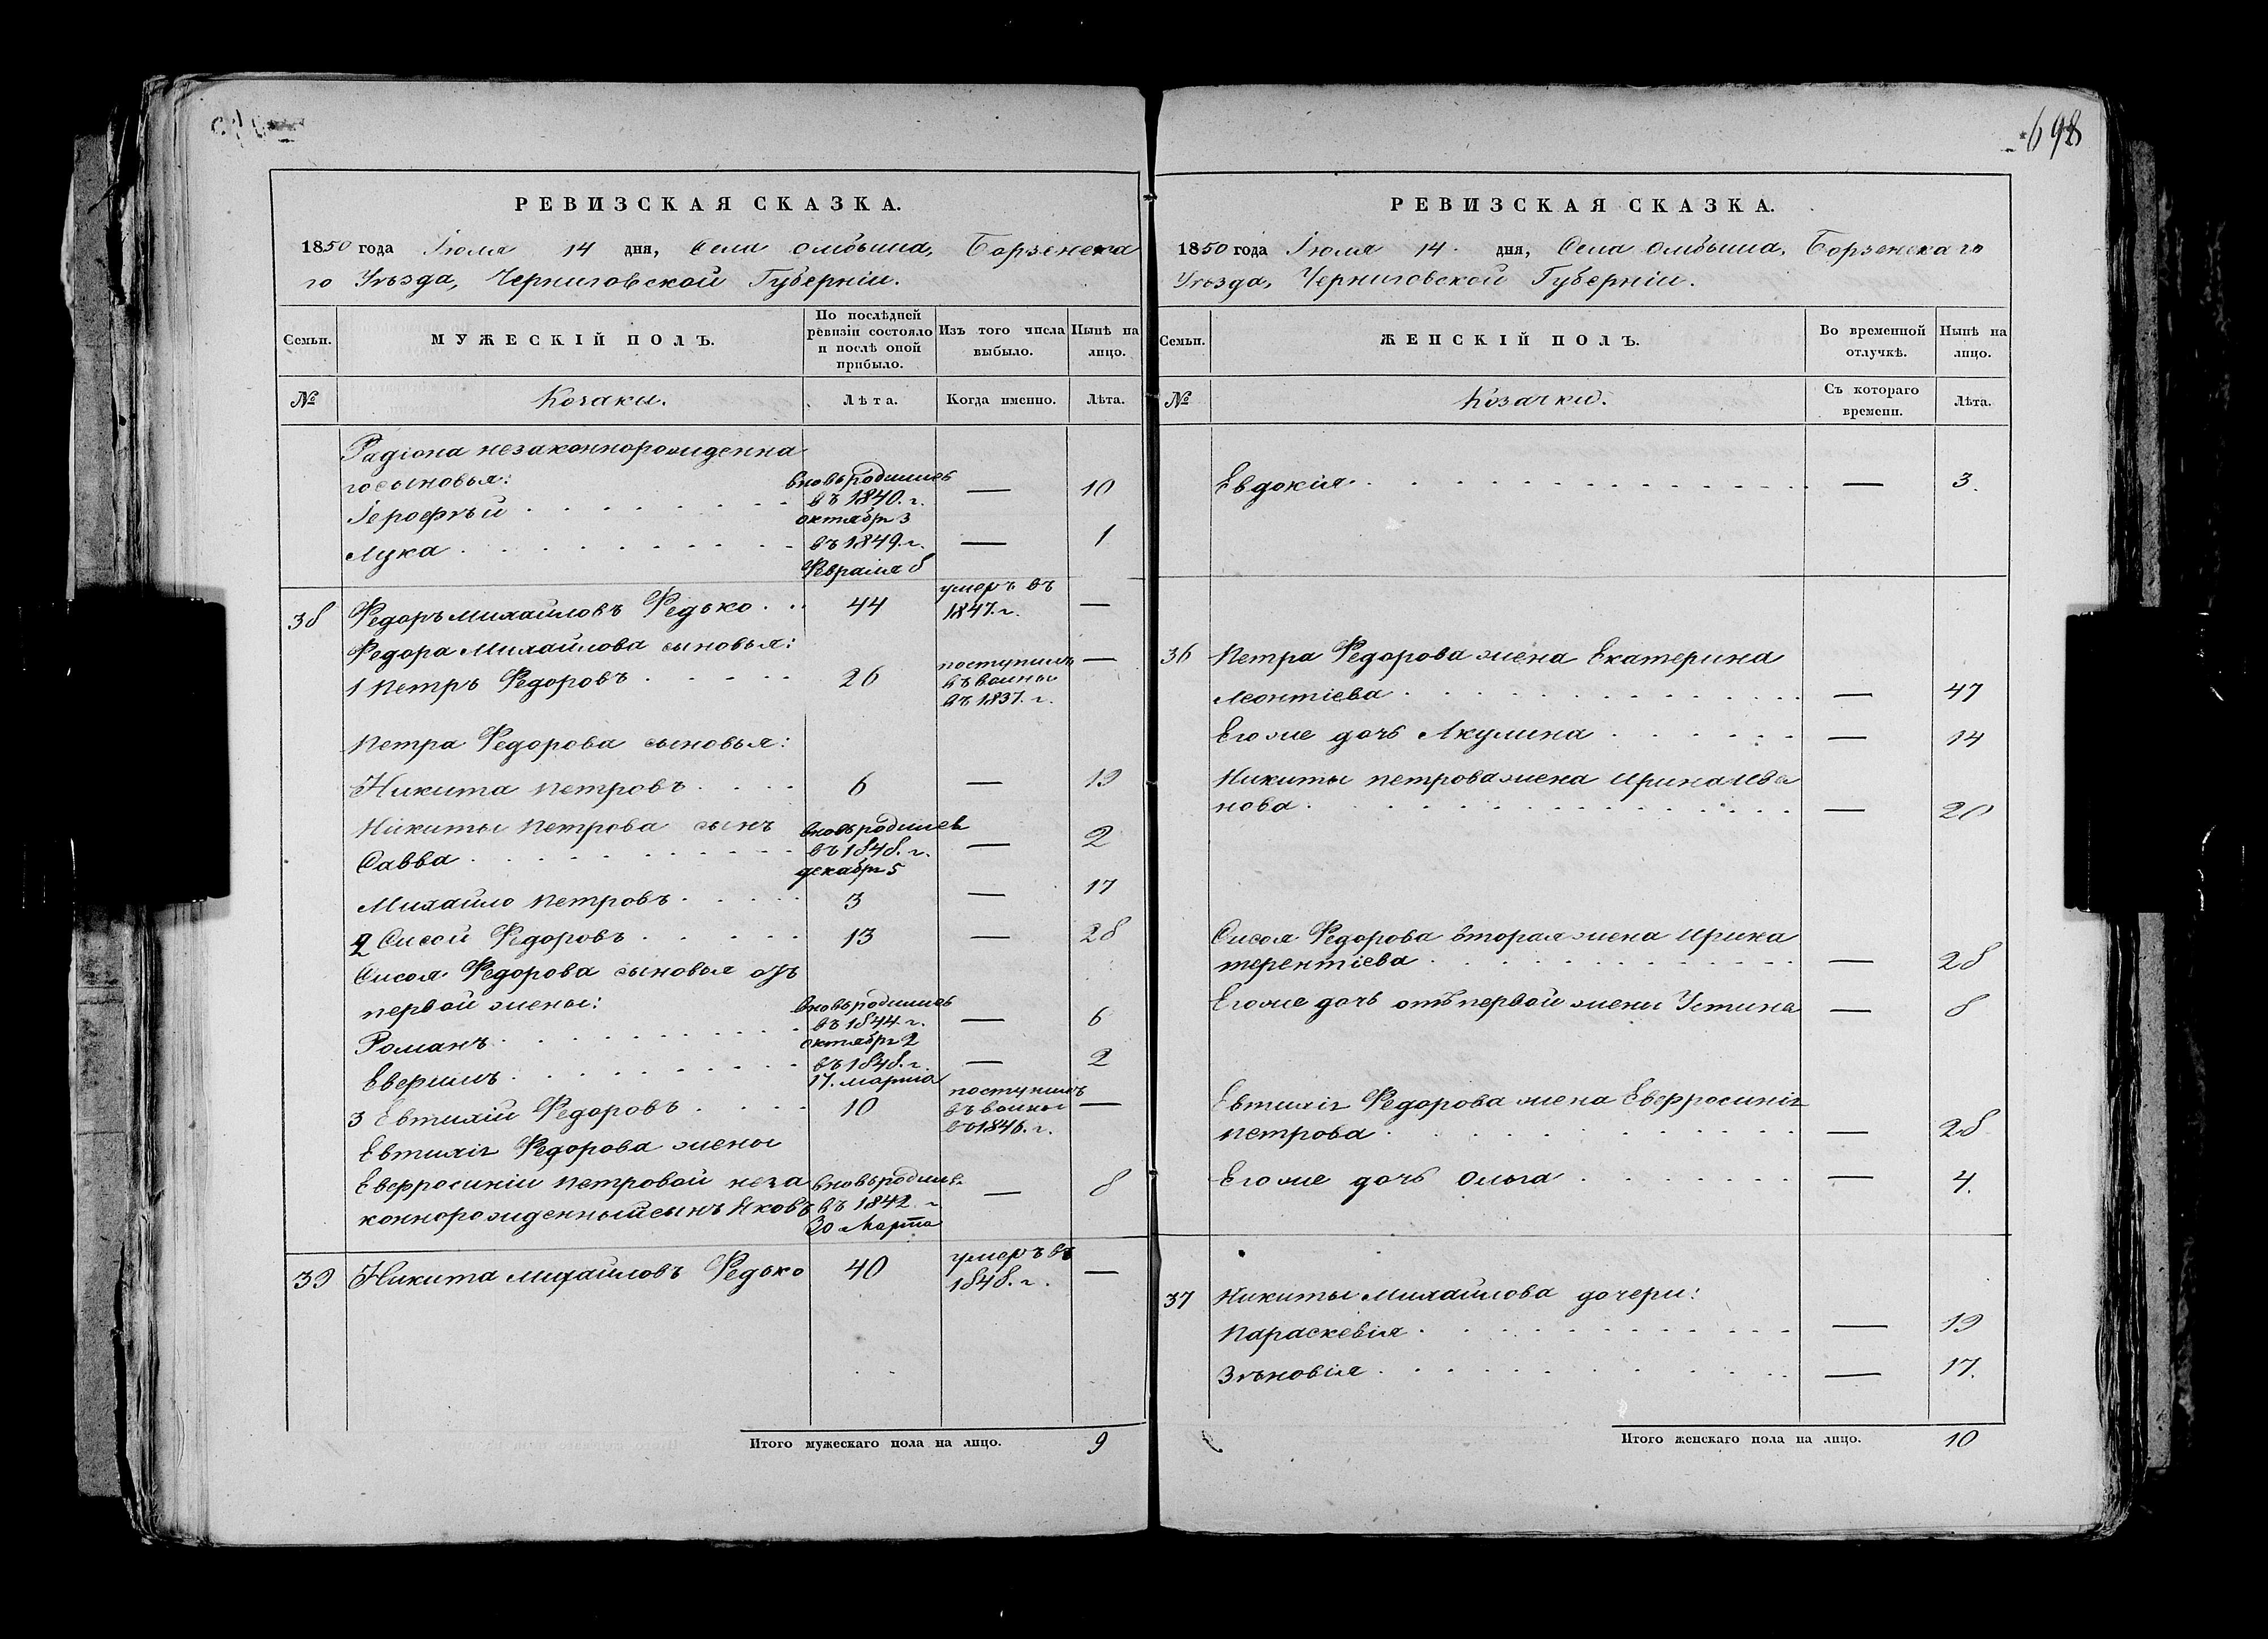 698
РЕВИЗСКАЯ СКАЗКА.
1850 года Іюля 14 дня, Села Омбыша, Борзенска
го Уѣзда, Черниговской Губерніи.
Семьи.
МУЖЕСКІЙ ПОЛЪ.
По послѣдней
ревизіи состояло
и послѣ оной
прибыло.
Изъ того числа
выбыло.
Нынѣ на
лицо.
№
Козаки.
Лѣта.
Когда именно.
Лѣта.
Радіона незаконнорожденна
го сыновья:
Іерофѣй
вновь родился
въ 1840. г.
октябр 3
—
10
Лука
въ 1849. г.
Февраля 8
—
1
38
Федоръ Михайловъ Федько
44
умеръ въ
1847. г.
—
Федора Михайлова сыновья:
1 Петръ Федоровъ
26
поступилъ
въ воины
въ 1837. г.
—
Петра Федорова сыновья:
Никита Петровъ
6
—
19
Никиты Петрова сынъ
Савва
вновь родился
въ 1848. г.
декабря 5
—
2
Михайло Петровъ
3
—
17
2 Сисой Федоровъ
13
—
28
Сисоя Федорова сыновья отъ
первой жены:
Романъ
вновь родились
въ 1844. г.
октября 2
—
6
Еверилъ
въ 1848. г.
17. марта
—
2
3 Евтихій Федоровъ
10
поступилъ
въ воины
въ 1846. г.
—
Евтихія Федорова жены
Евфросиніи Петровой неза
коннорожденный сынъ Яковъ
вновь родился
въ 1842 г
30 Марта
—
8
39
Никита Михайловъ Федько
40
умеръ въ
1848. г.
—
Итого мужескаго пола на лицо.
9
РЕВИЗСКАЯ СКАЗКА.
1850 года Іюля 14 дня, Села Омбыша, Борзенскаго
Уѣзда, Черниговской Губерніи.
Семьи.
ЖЕНСКІЙ ПОЛЪ.
Во временной
отлучкѣ.
Нынѣ на
лицо.
№
Козачки.
Съ котораго
времени.
Лѣта.
Евдокія
—
3.
36
Петра Федорова жена Екатерина
Леонтіева
—
47
Его же дочь Акулина
—
14
Никиты Петрова жена Ирина Ива
нова
—
20
Сисоя Федорова вторая жена Ирина
Терентіева
—
28
Его же дочь отъ первой жены Устина
—
8
Евтихія Федорова жена Евфросинія
Петрова
—
28
Его же дочь Ольга
—
4.
37
Никиты Михайлова дочери:
Параскевія
—
19
Зѣновія
—
17.
Итого женскаго пола на лицо.
10